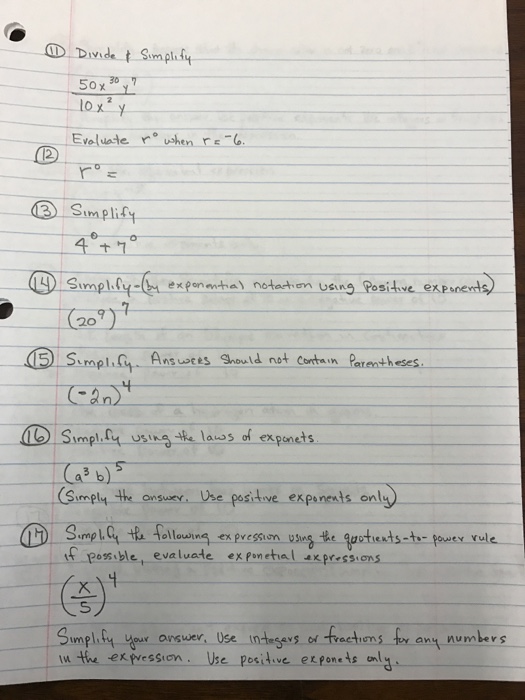 (11) Divide & Simplify
50x³⁰y⁷
10x²y
Evaluate r⁰ when r = ⁻6.
(12)
r⁰ =
(13) Simplify
4⁰ + 7⁰
(14) Simplify-(by exponential notation using Positive exponents)
(20⁹)⁷
(15) Simplify. Answers Should not contain Parentheses.
(-2n)⁴
(16) Simplify using the laws of exponets.
(a³b)⁵
(Simply the answer. Use positive exponents only)
(17) Simplify the following expression using the quotients-to-power rule
if possible, evaluate exponetial expressions
(x/5)⁴
Simplify your answer. Use integers or fractions for any numbers
in the expression. Use positive exponets only.